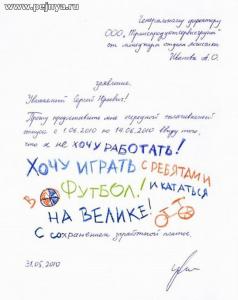 www.pejnya.ru
Генеральному директору
ООО "Трансродуктсервисгрупп"
от менеджера отдела
Иванова А.О.
заявление.
Уважаемый Сергей Юрьевич!
Прошу предоставить мне очередной оплачиваемый
отпуск с 1.06.2010 по 14.06.2010 ввиду того,
что я не ХОЧУ РАБОТАТЬ!
ХОЧУ ИГРАТЬ С РЕБЯТАМИ
В ФУТБОЛ! И КАТАТЬСЯ
НА ВЕЛИКЕ!
С сохранением заработной платы.
31.05.2010